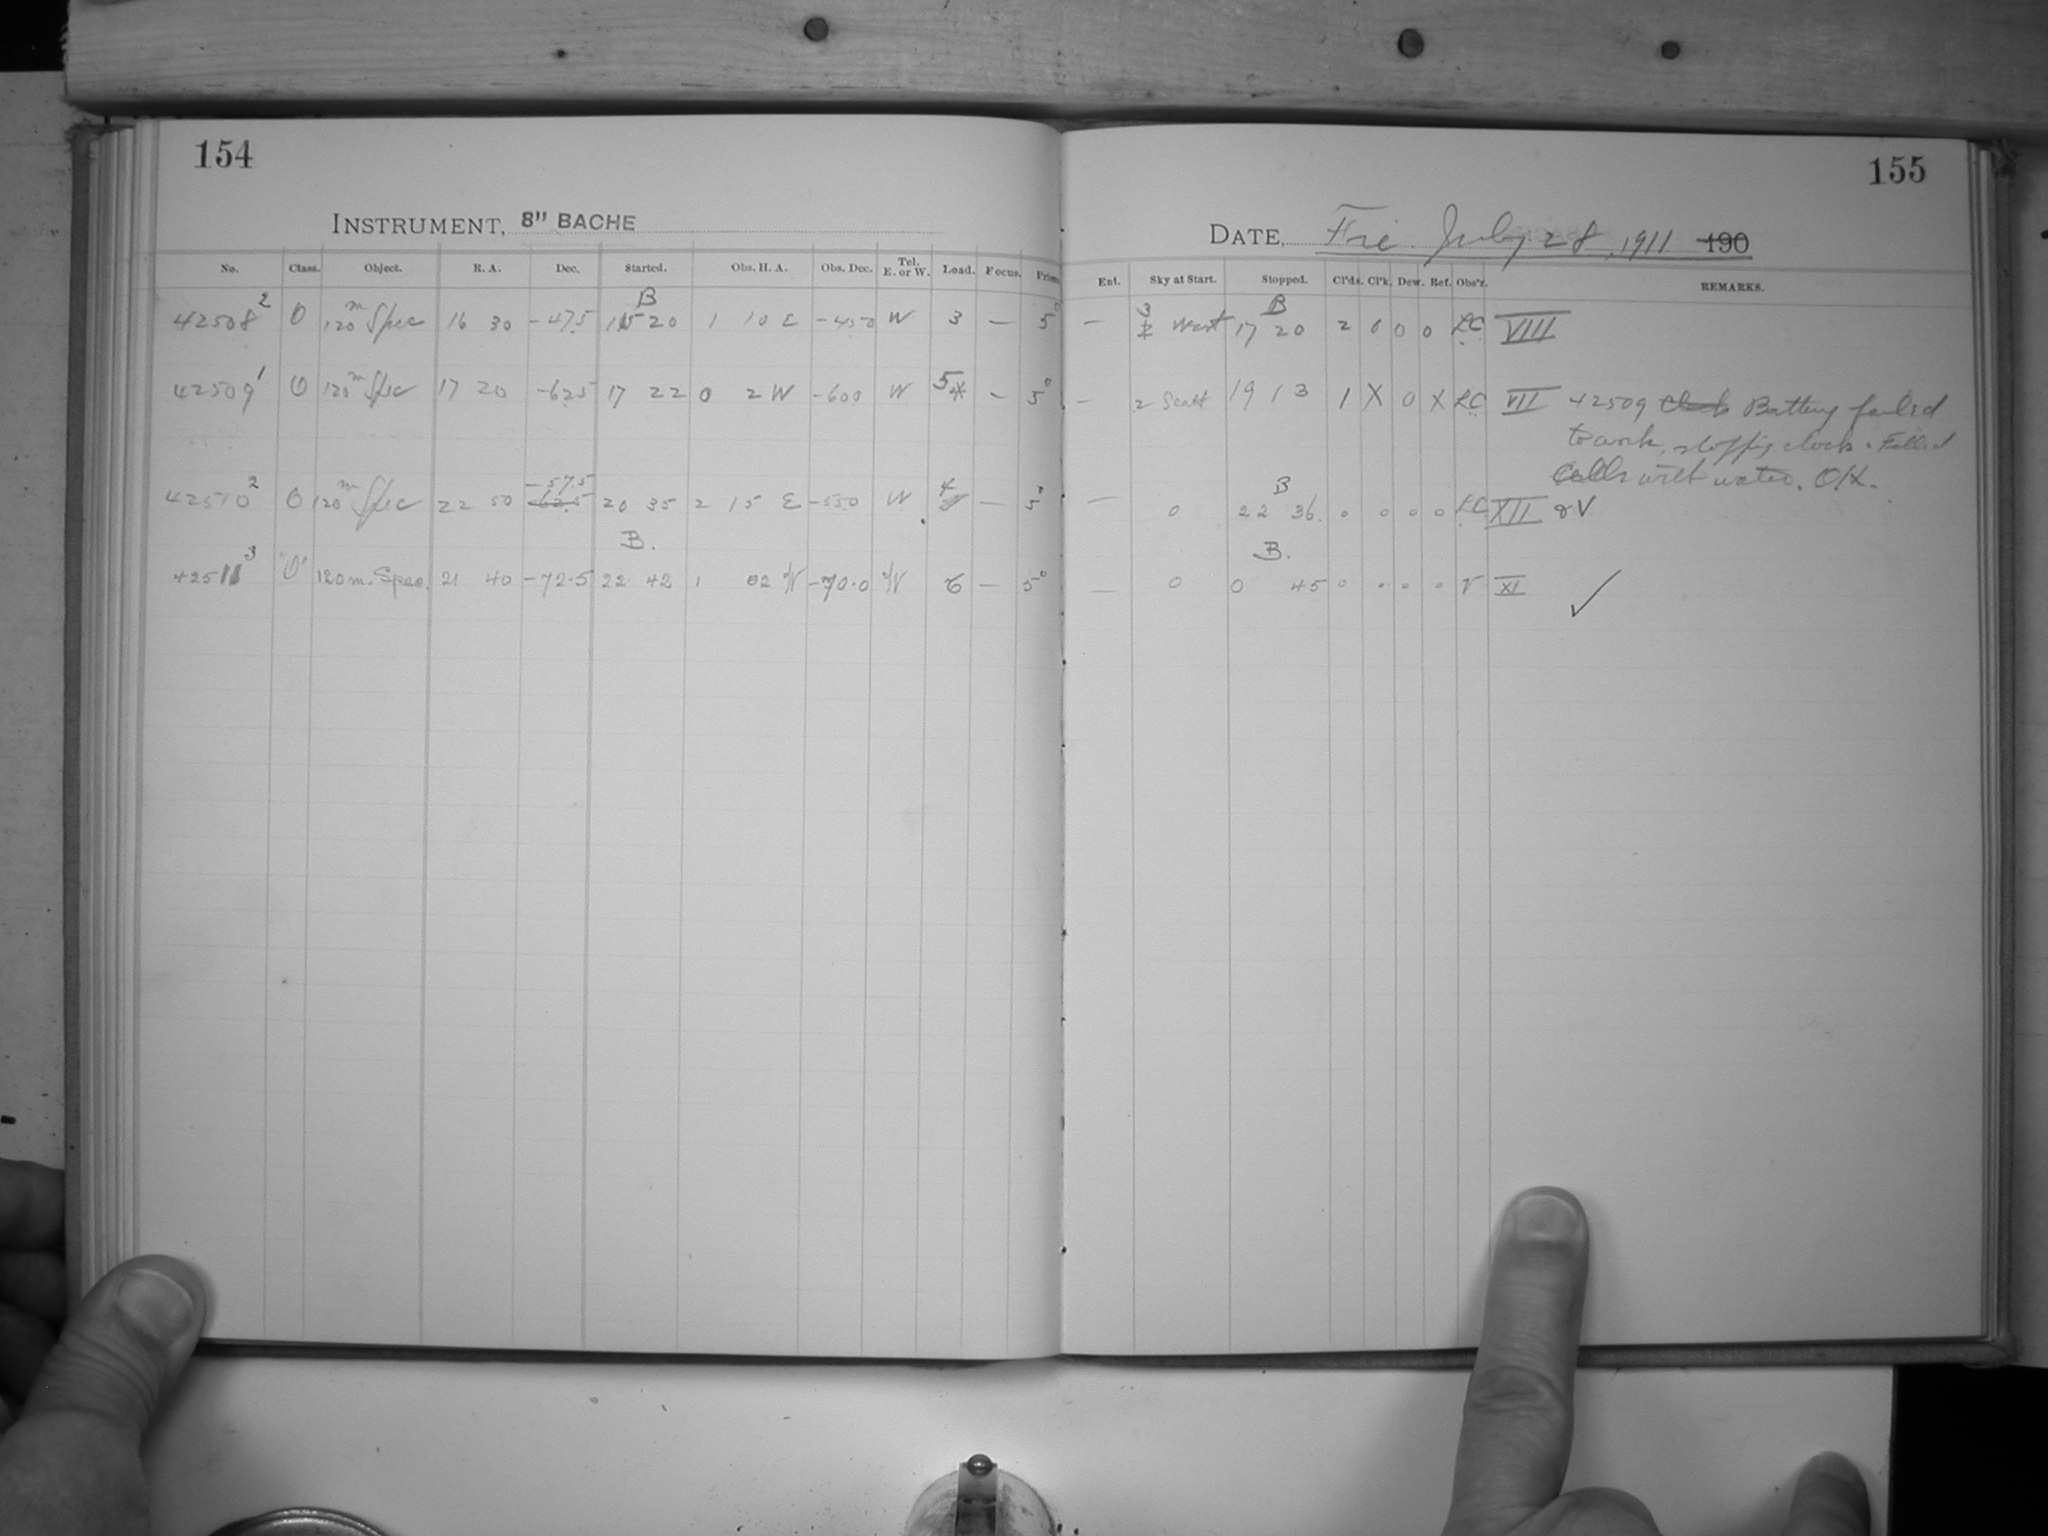 154
155
INSTRUMENT, 8" BACHE
DATE, Fri. July 28, 1911 190
No. Class. Object. R. A. Dec. Started. Obs. H. A. Obs. Dec. Tel. E. or W. Load. Focus. Prism Ent. Sky at Start. Stopped. Cl'ds. Cl'k. Dew. Ref. Obs'r. REMARKS.
B B 3
42508 2 O 120 m Spec 16 30 -47.5 15 20 1 10 E -45.0 W 3 — 5° — West 17 20 2 0 0 0 LC VIII
42509 1 O 120 m Spec 17 20 -62.5 17 22 0 2 W -60.0 W 5 — 5° — 2 Scatt 19 13 1 X 0 X LC VII 42509 Clock Battery failed
to work, stopping clock. Filled
cells with water. O.K.
-57.5 4 B
42510 2 O 120 m Spec 22 50 -62.5 20 35 2 15 E -55.0 W — 5° — 0 22 36 0 0 0 0 LC XII & V
B. B.
42511 3 "O" 120 m. Spec. 21 40 -72.5 22 42 1 02 W -70.0 W 6 — 5° — 0 0 45 0 0 0 0 V XI ✓